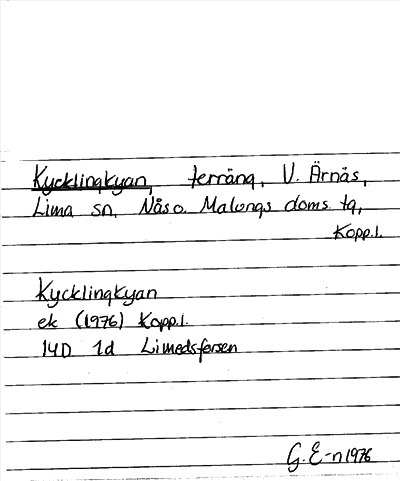 Kycklingkyan, terräng, V. Ärnås,
Lima sn, Nås o. Malungs doms. tg,
Kopp.l.
Kycklingkyan
ek (1976) Kopp.l.
14D 1d Limedsforsen
G. E-n 1976